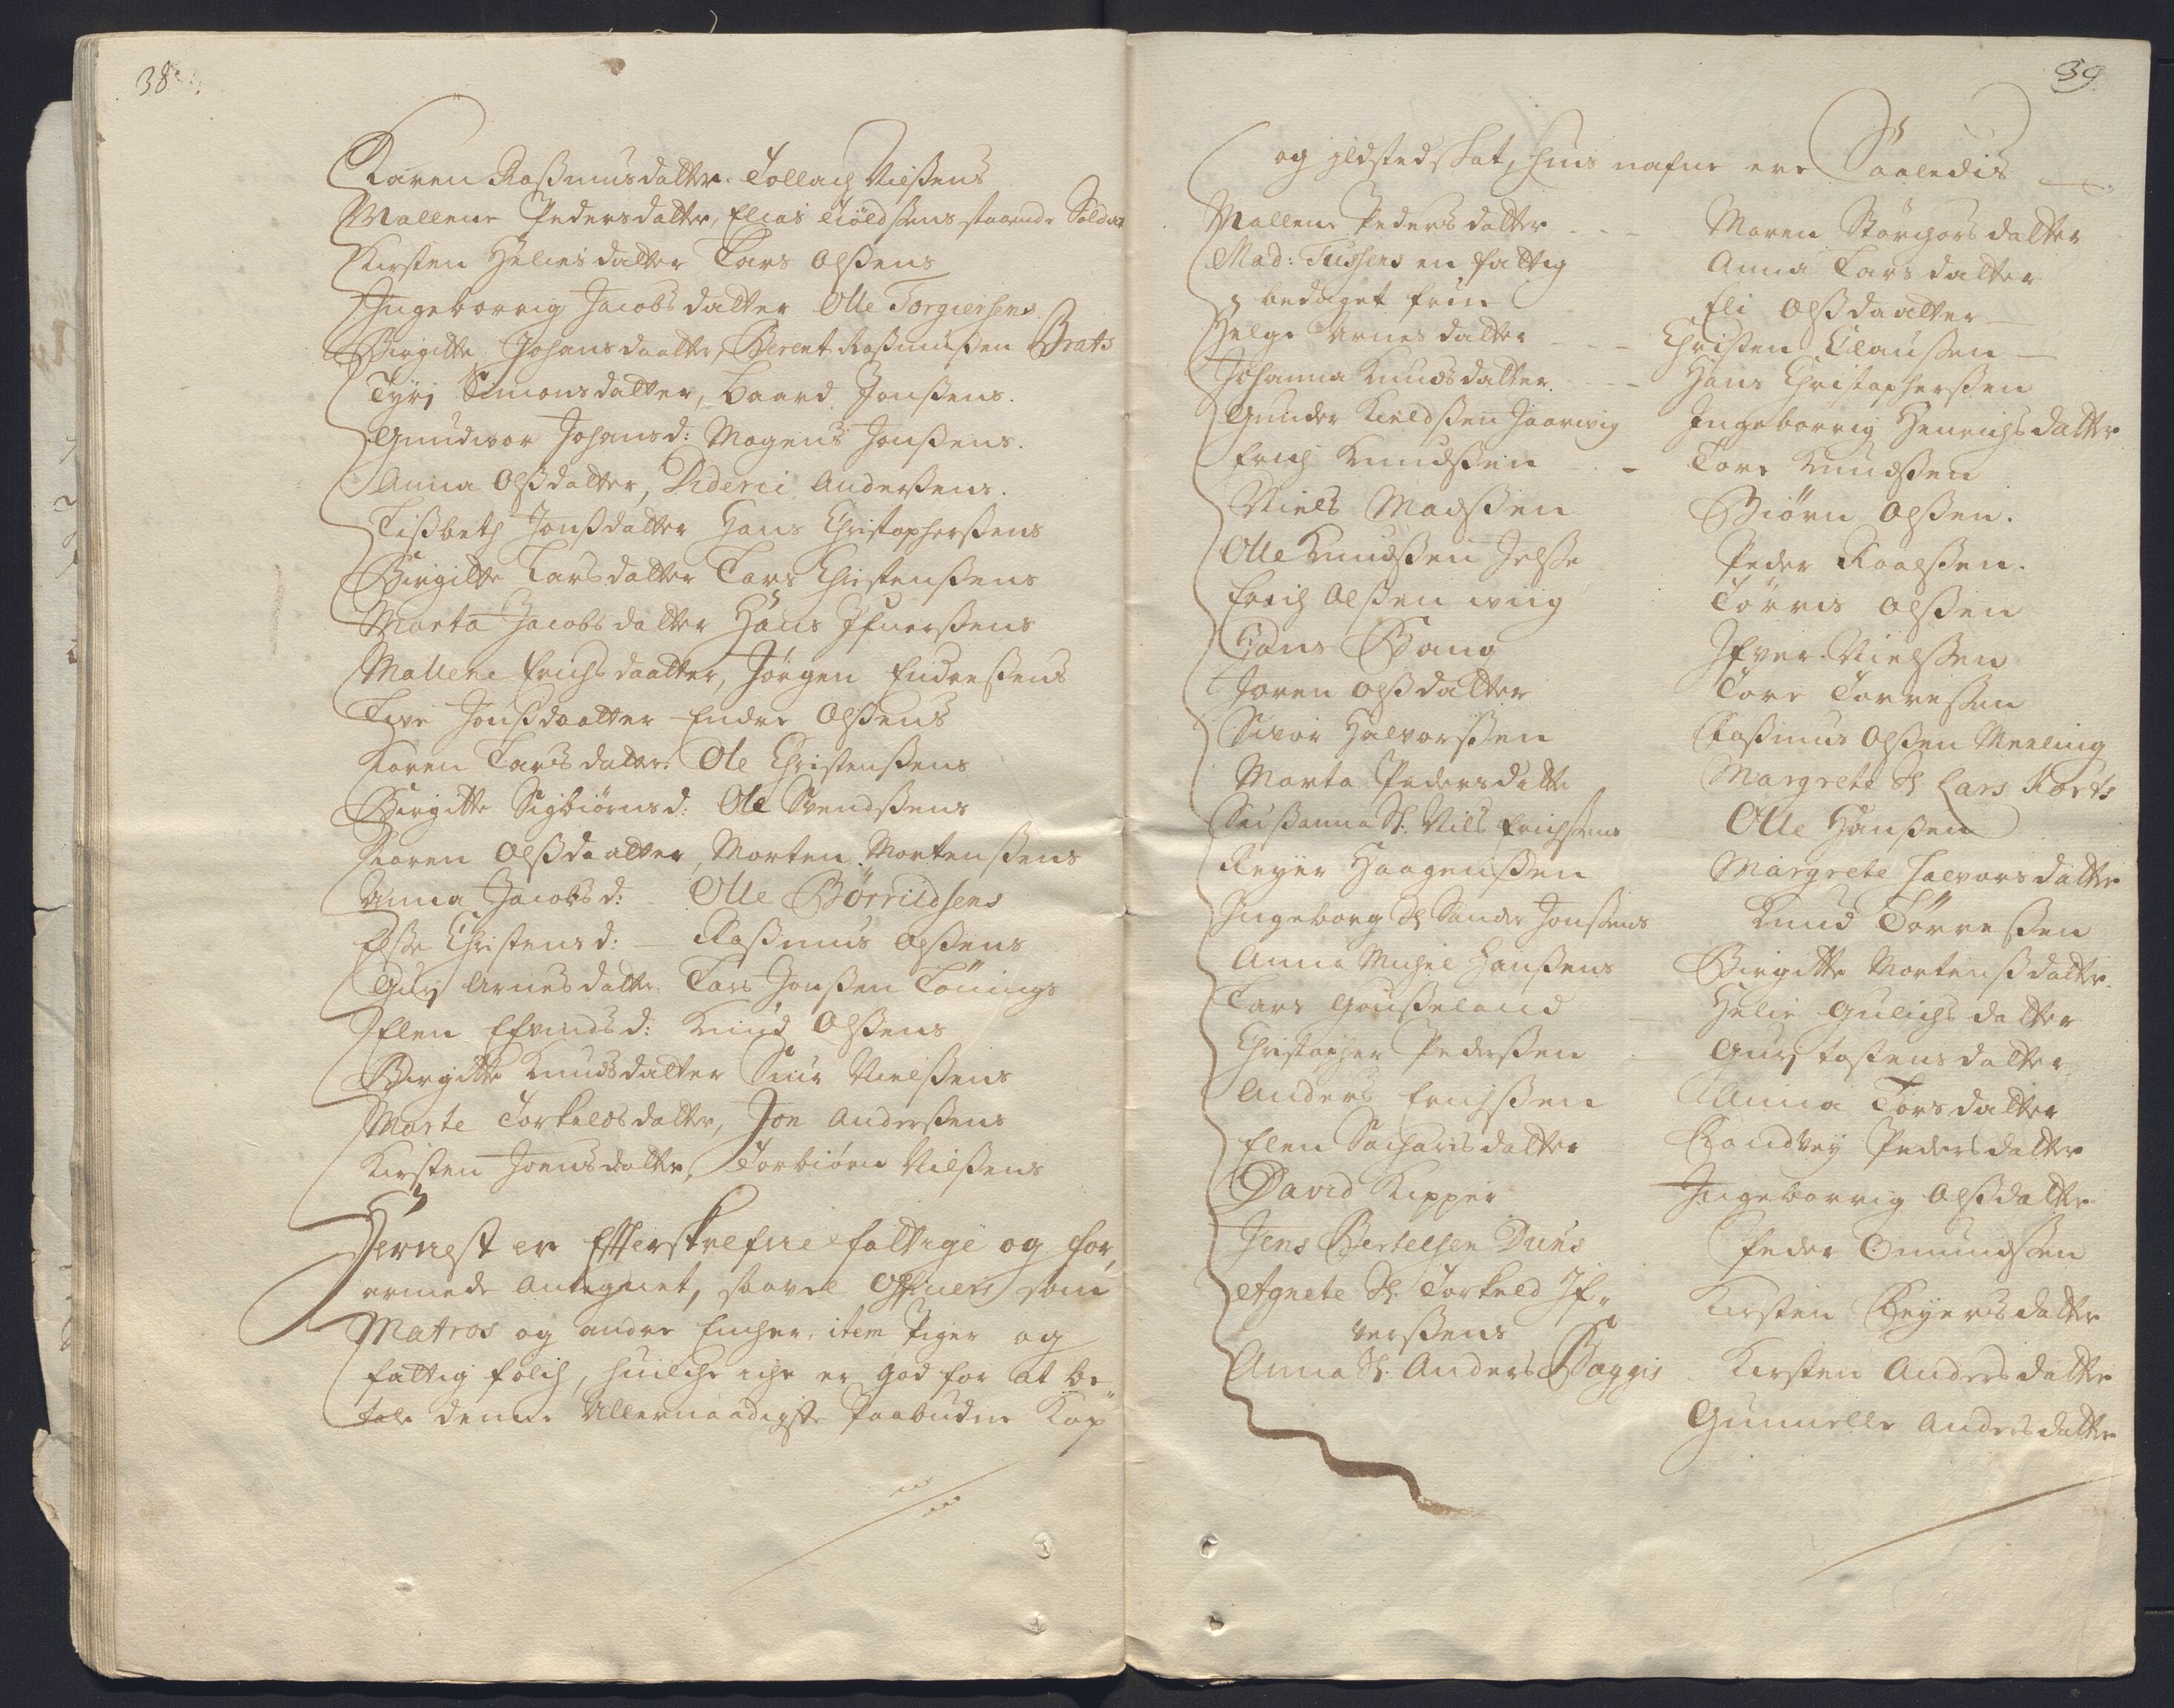 38
Karen Rasmusdatter. Tollach Nielßens
Mallene Pedersdatter, Elias Kiøldsens staaende Soldat
Kirsten Heliesdatter Lars Olßens
Ingeborrig Jacobsdatter Olle Torgiersens
Birgitte Johansdaatter, Berent Raßmußen Brats
Tyri Simonsdatter, Baard Jonßens.
Gundvor Johansd: Magens Jonßens.
Anna Olßdatter, Dideric Anderßens.
Lißbeth Jonßdatter Hans Christopherßens
Birgitte Larsdatter Lars Christenßens
Marta Jacobsdatter Hans Ifuerßens
Mallene Erichsdaatter, Jørgen Endreßens
Live Jonßdaatter Endre Olßens
Karen Larsdatter. Ole Christenßens
Birgitte Sigbiørnsd: Ole Svendßens
Karen Olßdaatter, Morten Mortenßens
Anna Jacobsd: Olle Børrildsens
Else Christensd: Raßmus Olßens
Guri Arnesdatter. Lars Jonßen Tønings
Elen Efvindsd: Knud Olßens
Birgitte Knudsdatter Siur Nielßens
Marte Torkeldsdatter, Jon Anderßens
Kirsten Joensdatter, Torbiørn Nilßens
Hernest er Efterskrefne fattige og for,
armede Antegnet, saavel Officers som
Matros og andre Encher, item Piger og
fattig folch, huilche iche er god for at be
tale denne Allernaadigste Paabudne Kop
39.
og ildstedskat, huis nafne ere Saaledis
Mallene Pedersdatter - - -
Mad: Tussens en fattig
bedaget frue
Helge Arnesdatter - - -
Johanna Knudsdatter. - - -
Gunder Kieldßen
Erich Knudßen - -
Niels Madßen
Olle Knudßen Jelse
Erich Olßen wiig
Hans Bang
Joren Olßdatter
Sivor Halvorßen
Marta Pedersdatter
Sußanna Sl. Nils Erichßens
Reyer Haagenßen
Ingeborg Sl Sander Jonßens
Anna Michel Hanßens
Lars Gousseland
Christopher Pederßen
Anders Erichßen
Elen Sacharisdatter
David Kipper
Jens Bertelsen Duus
Agnete Sl. Torkeld If,
verßens
Anna Sl. Anders Baggis
Maren Størchorsdatter
Anna Larsdatter
Eli Olßdaatter
Christen Claußen
Hans Christopherßen
Ingeborrig Henrichsdatter
Tore Knudßen
Biørn Olßen.
Peder Roalßen.
Tørris Olßen
Ifver Nielßen
Tore Torreßen
Raßmus Olßen Meeling
Margrete Sl Lars Korts
Olle Hanßen
Margrete Halvorsdatter
Knud Tørreßen
Birgitte Mortenßdatter
Helie Gulichsdatter
Guri Tostensdatter
Anna Torsdatter
Randvey Pedersdatter
Ingeborrig Olßdatter
Peder Omundßen
Kirsten Reyersdatter
Kirsten Andersdatter
Gunnelle Andersdatter